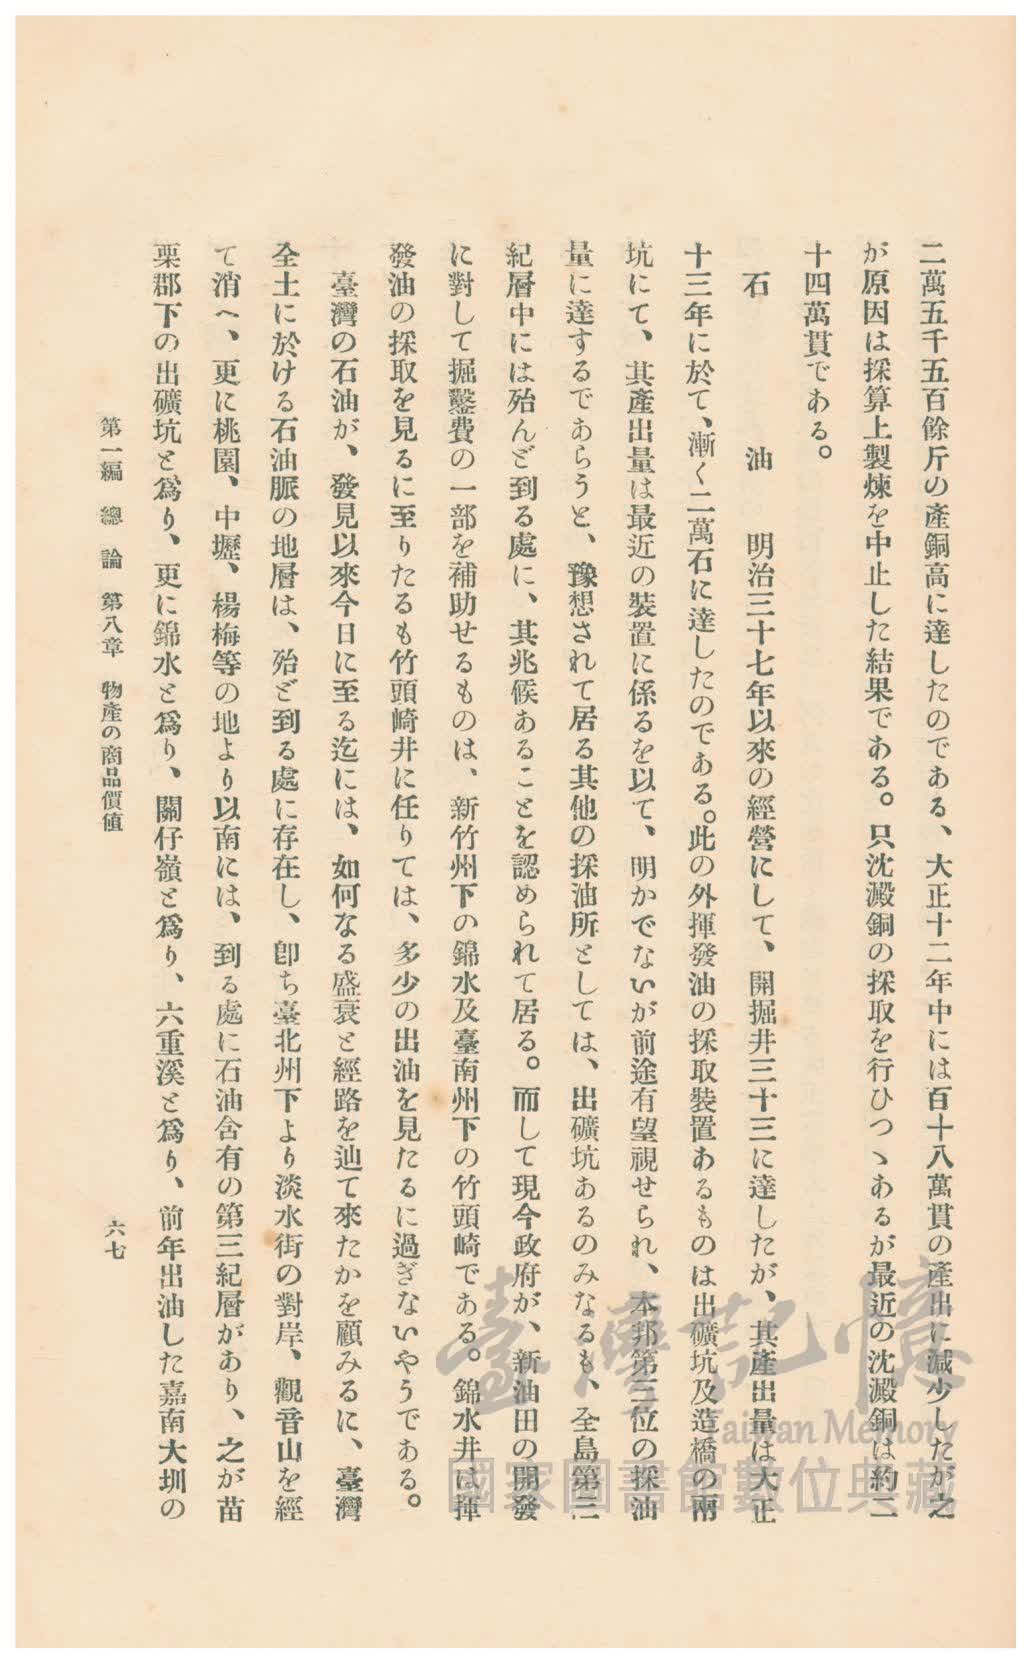 二萬五千五百餘斤の產銅高に達したのである、大正十二年中には百十八萬貫の產出に減少したが之
が原因は採算上製煉を中止した結果である。只沈澱銅の採取を行ひつゝあるが最近の沈澱銅は約二
十四萬貫である。
石　油　明治三十七年以來の經營にして、開掘井三十三に達したが、其產出量は大正
十三年に於て、漸く二萬石に達したのである。此の外揮發油の採取裝置あるものは出礦坑及造橋の兩
坑にて、其產出量は最近の裝置に係るを以て、明かでないが前途有望視せられ、本邦第三位の採油
量に達するであらうと、豫想されて居る其他の採油所としては、出礦坑あるのみなるも、全島第三
紀層中には殆んど到る處に、其兆候あることを認められて居る。而して現今政府が、新油田の開發
に對して掘鑿費の一部を補助せるものは、新竹州下の錦水及臺南州下の竹頭崎である。錦水井は揮
發油の採取を見るに至りたるも竹頭崎井に任りては、多少の出油を見たるに過ぎないやうである。
臺灣の石油が、發見以來今日に至る迄には、如何なる盛衰と經路を辿て來たかを顧みるに、臺灣
全土に於ける石油脈の地層は、殆ど到る處に存在し、卽ち臺北州下より淡水街の對岸、觀音山を經
て消へ、更に桃園、中壢、楊梅等の地より以南には、到る處に石油含有の第三紀層があり、之が苗
栗郡下の出礦坑と爲り、更に錦水と爲り、關仔嶺と爲り、六重溪と爲り、前年出油した嘉南大圳の
第一編　總　論　第八章　物產の商品價値
六七
臺灣記憶
Taiwan Memory
國家圖書館數位典藏